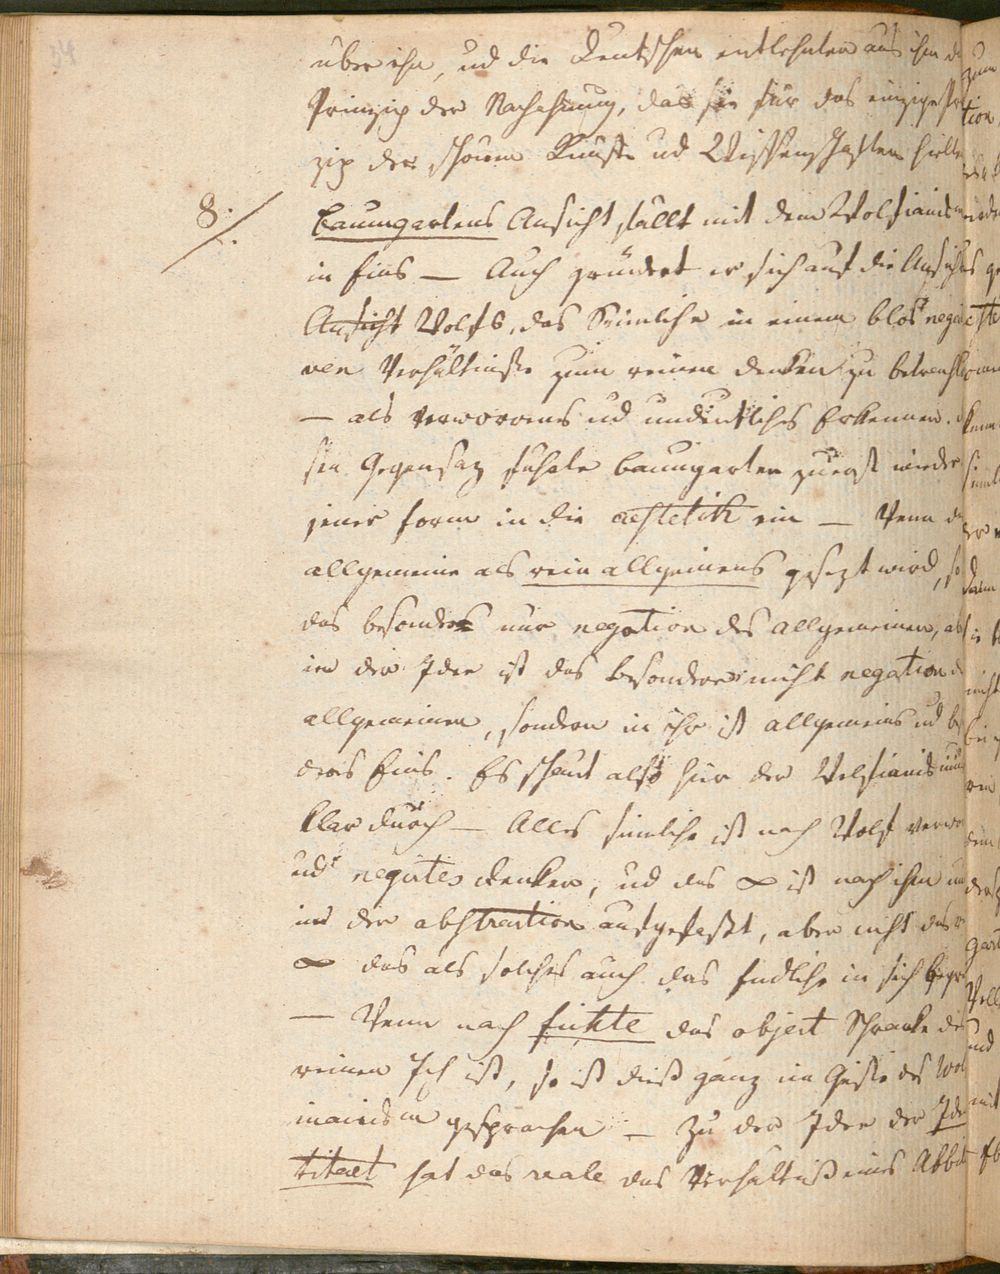 34
über ihn, ud die Deutschen entlehnten aus ihm d
Prinzip der Nachahmung, das sie für das einzige Pr
zip der schönen Künste ud Wissenschaften hielte
8. Baumgartens Ansicht fällt mit dem Wolfianism
in Eins — Auch gründet er sich auf die Ansicht
Ansicht Wolfs, das Sinnliche in einem blos negati
ven Verhältniße zum reinen Denken zu betrachte
— als verworrenes ud undeutliches Erkennen.
sen Gegensatz führte Baumgarten zuerst wieder
jener Form in die aestetik ein — Wenn d
allgemeine als rein allgemeines gesezt wird, so
das besondere nur negation des allgemeinen, ab
in der Idee ist das besondere nicht negation d
allgemeinen, sondern in ihr ist allgemeines ud be
deres Eins. Es scheint also hier der Wolfianism
klar durch — Alles sinnliche ist nach Wolf verwo
ud negirtes Denken, ud das ∞ ist nach ihm nu
in der abstraction aufgefaßt, aber nicht das
∞ das als solches auch das Endliche in sich begr
— Wenn nach Fichte das object Schranke des
reinen Ich ist, so ist dieß ganz im Geiste des Wol
fianism gesprochen — Zu der Idee der Iden
titaet hat das reale das Verhältniß eines Abbil